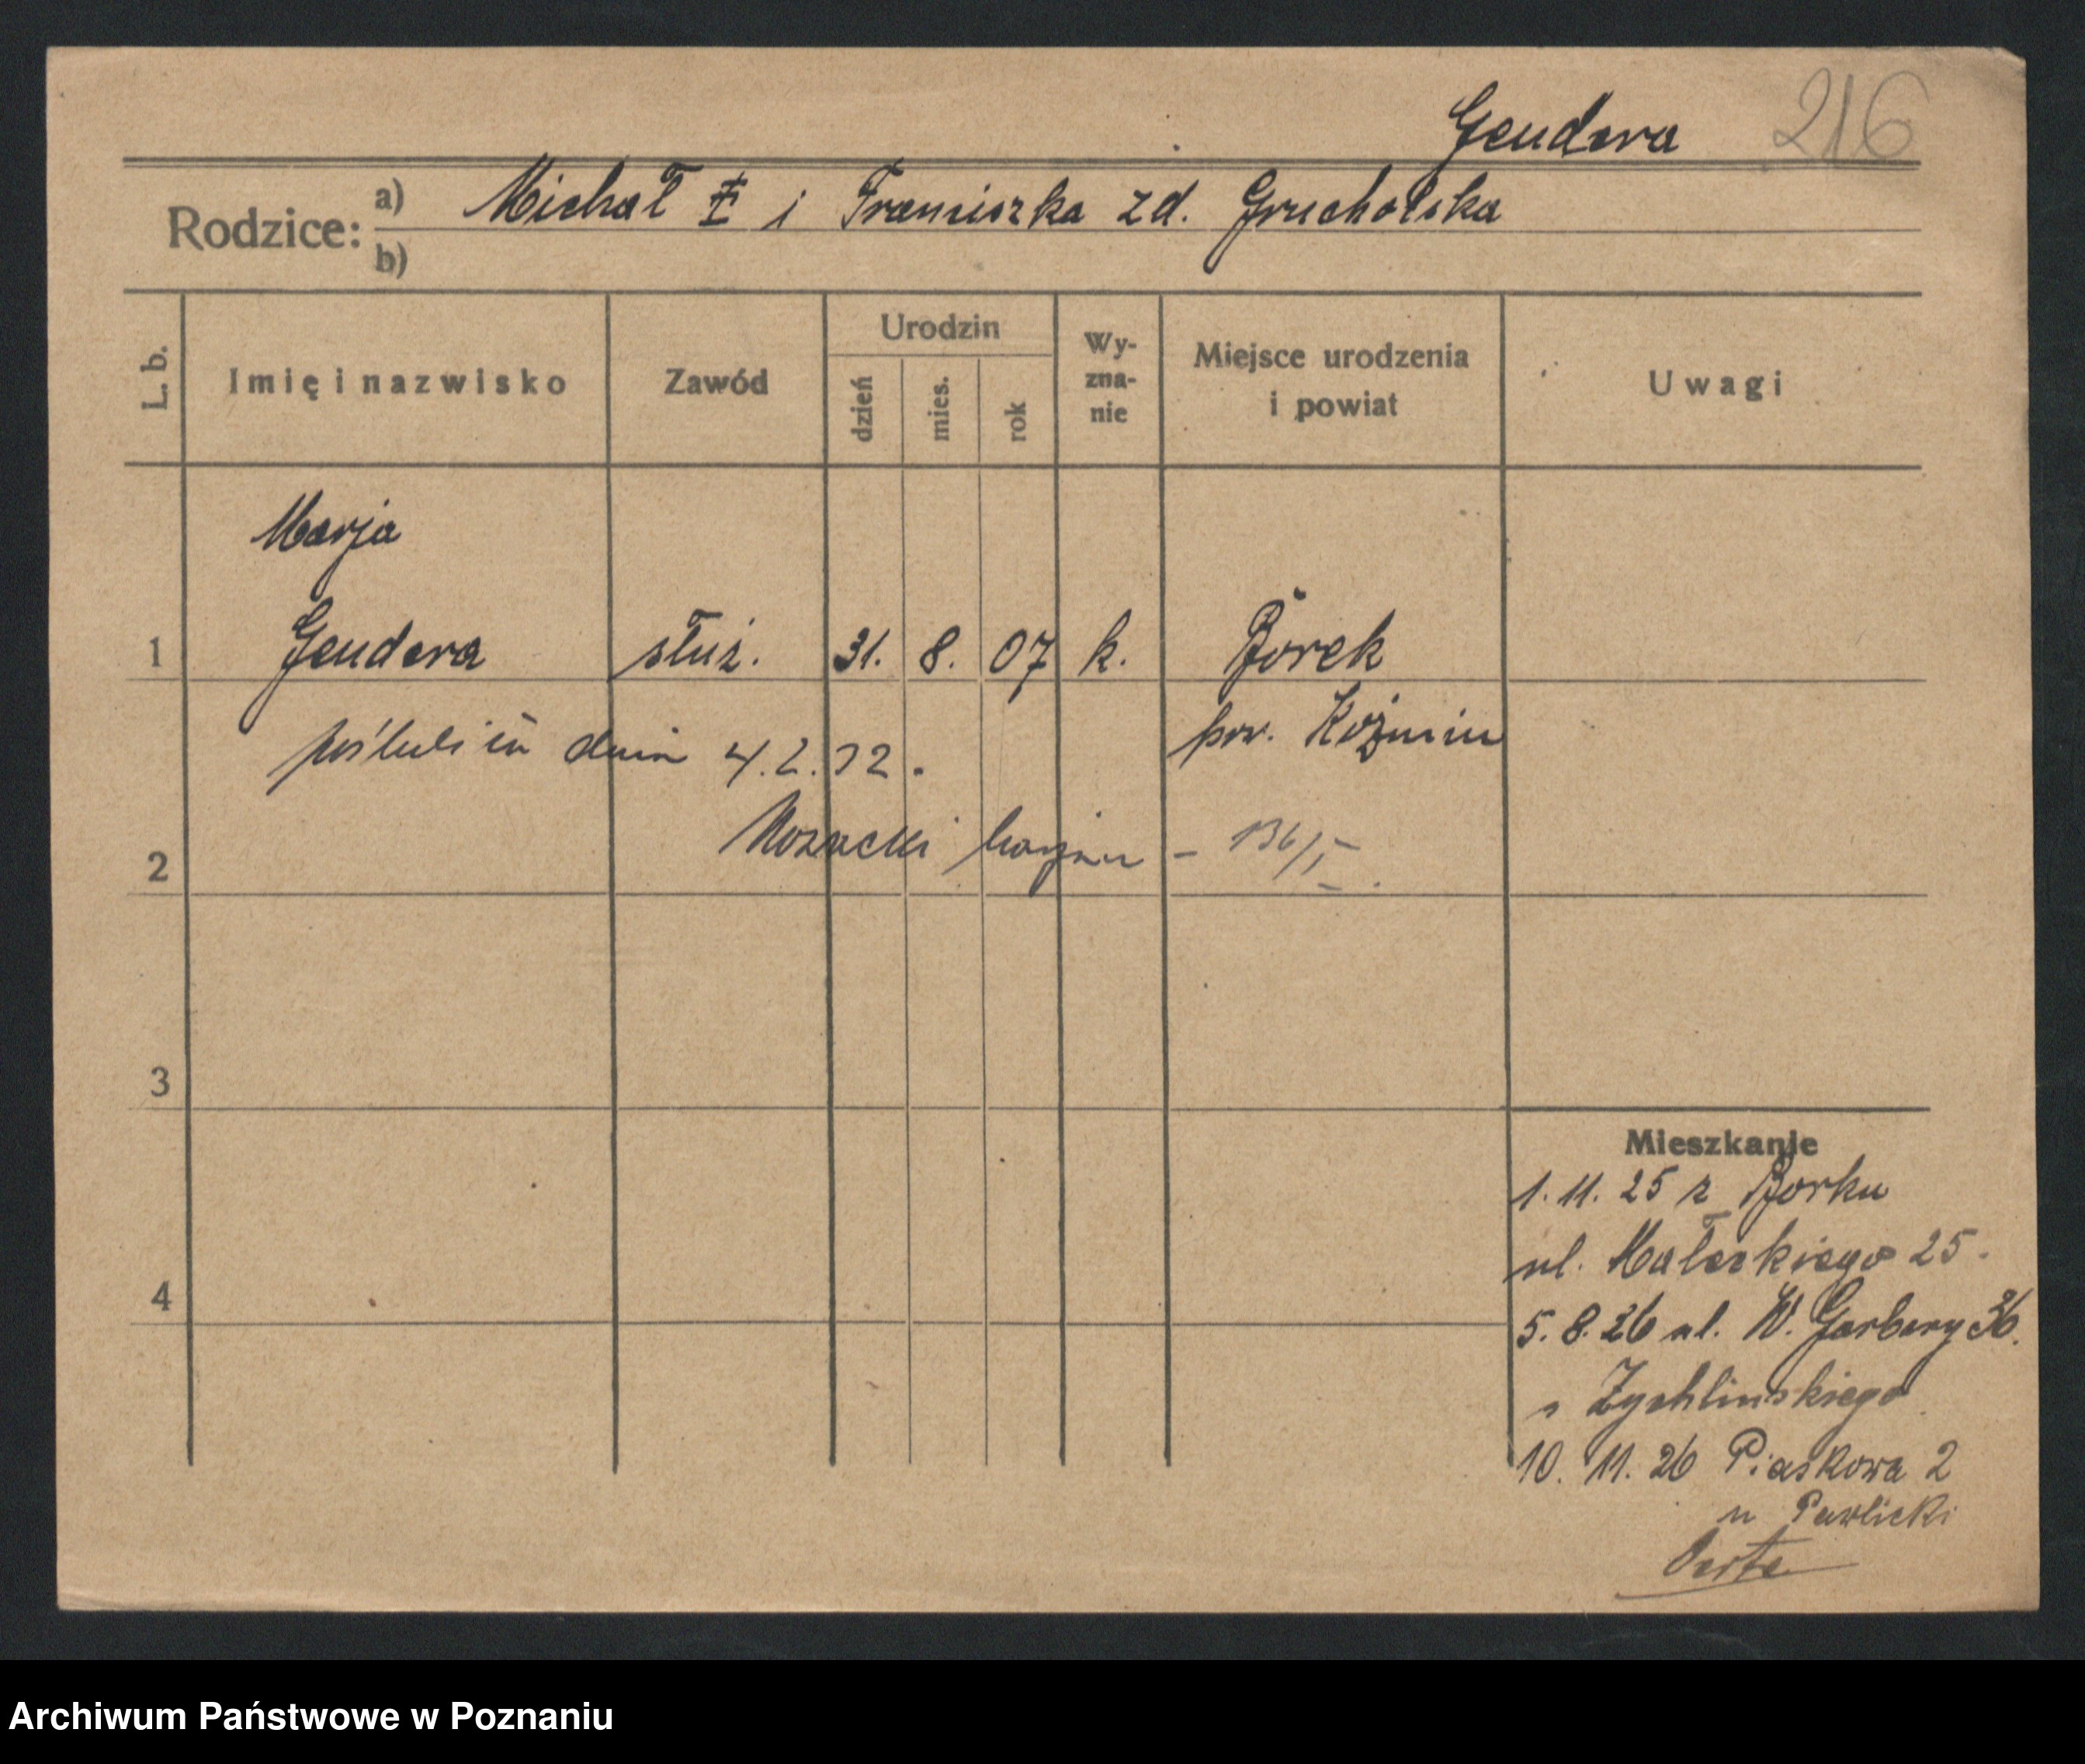 Gendera 216
Rodzice: a) Michał ‡ i Franciszka zd. Grucholska
b)
L. b. Imię i nazwisko Zawód Urodzin dzień mies. rok Wyznanie Miejsce urodzenia i powiat Uwagi
Marja
1 Gendera służ. 31. 8. 07 k. Borek
dnia 4.2.32. pow. Koźmin
2 Nozacki
3
Mieszkanie
1. 11. 25 z Borku
ul. Małeckiego 25.
4
5. 8. 26 ul. W. Garbary 36.
Zychlinskiego
10. 11. 26 Piaskowa 2
u Pawlicki
Archiwum Państwowe w Poznaniu